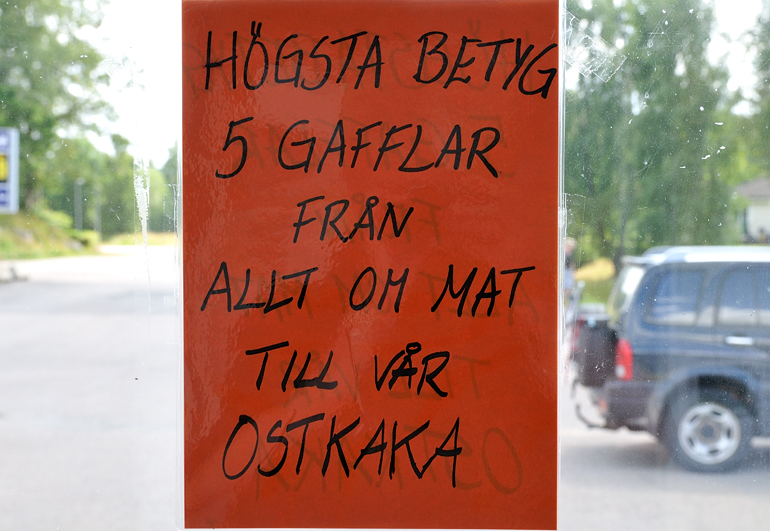 HÖGSTA BETYG
5 GAFFLAR
FRÅN
ALLT OM MAT
TILL VÅR
OSTKAKA